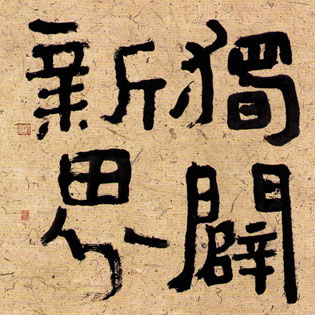 獨闢
新界